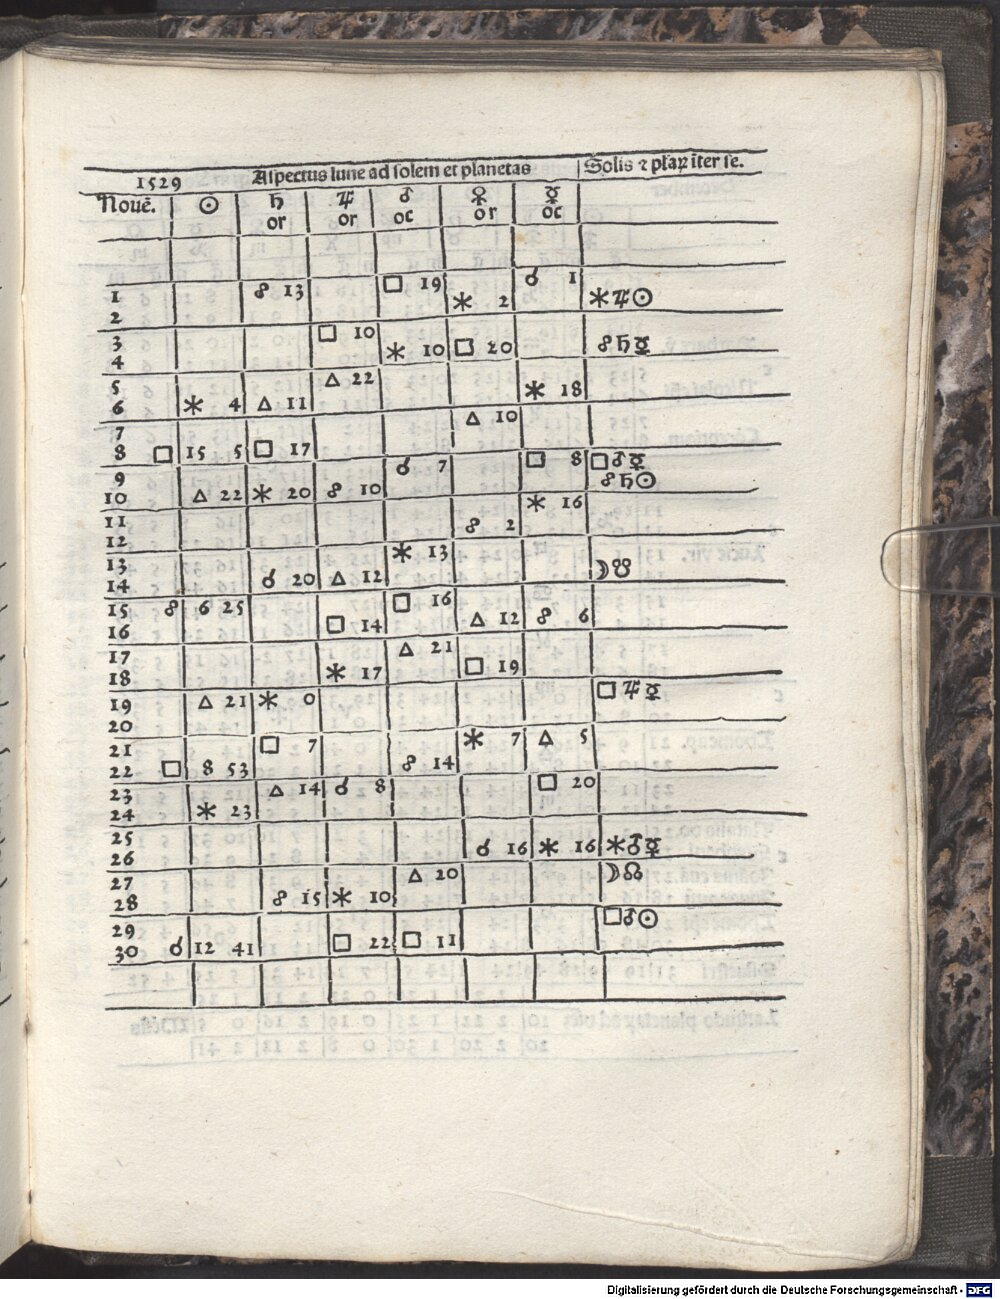 1529 Aspectus lune ad solem et planetas Solis ⁊ plaꝝ iter se.
Nouē. ☉ ♄ ♃ ♂ ♀ ☿
or or oc or oc
1 ☍ 13 □ 19 ☌ 1
2 ⚹ 2 ⚹♃☉
3 □ 10
4 ⚹ 10 □ 20 ☍♄☿
5 △ 22
6 ⚹ 4 △ 11 ⚹ 18
7 △ 10
8 □ 15 5 □ 17
9 ☌ 7 □ 8 □♂☿
10 △ 22 ⚹ 20 ☍ 10 ☍♄☉
11 ⚹ 16
12 ☍ 2
13 ⚹ 13
14 ☌ 20 △ 12 ☽☋
15 ☍ 6 25 □ 16
16 □ 14 △ 12 ☍ 6
17 △ 21
18 ⚹ 17 □ 19
19 △ 21 ⚹ 0 □♃☿
20
21 □ 7 ⚹ 7 △ 5
22 □ 8 53 ☍ 14
23 △ 14 ☌ 8 □ 20
24 ⚹ 23
25
26 ☌ 16 ⚹ 16 ⚹♂☿
27 △ 20 ☽☊
28 ☍ 15 ⚹ 10
29 □♂☉
30 ☌ 12 41 □ 22 □ 11
Digitalisierung gefördert durch die Deutsche Forschungsgemeinschaft - DFG